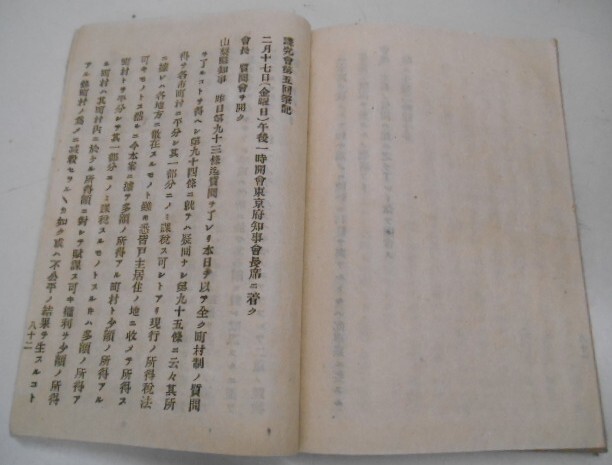 講究會第五回筆記
二月十七日(金曜日)午後一時開會東京府知事會長席ニ着ク
會長 質問會ヲ開ク
山梨縣知事 昨日第九十三條迄質問ヲ了レリ本日ヲ以テ全ク町村制ノ質問
ヲ了ルコトヲ得ヘシ第九十四條ニ就テハ疑問ナシ第九十五條ニ云々其所
得ヲ各市町村ニ平分シ其一部分ニノミ課税ス可シトアリ現行ノ所得税法
ニ依レハ各地方ニ散在スルモノト雖モ悉皆戸主居住ノ地ニ收メテ所得ス
可キモノトス然ルニ今本案ニ據テ多額ノ所得アル町村ト少額ノ所得アル
町村トヲ平分シテ其一部分ニノミ課税スルモノトスルキハ多額ノ所得ア
ル町村ハ其町村内ニ於ケル所得額ニ對シテ賦課ス可キ權利ヲ少額ノ所得
アル他町村ノ爲メニ減殺セラルヽカ如ク或ハ不公平ノ結果ヲ生スルコト
八十二